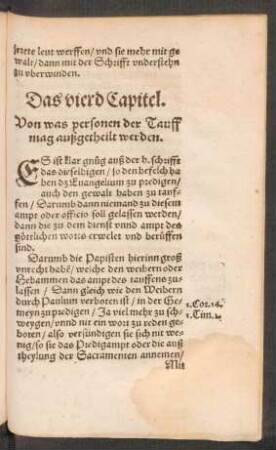 lerete leut werffen/ vnd sie mehr mit ge
walt/ dann mit der Schrifft vnderstehn
zu vberwinden.
Das vierd Capitel.
Von was personen der Tauff
mag außgetheilt werden.
ES ist klar gnůg auß der h. schrifft
das dieselbigen/ so den befelch ha
ben dz Euangelium zu predigen/
auch den gewalt haben zu tauf-
fen/ Darumb dann niemand zu diesem
ampt oder officio soll gelassen werden/
dann die zu dem dienst vnnd ampt des
göttlichen worts erwelet vnd berüffen
sind.
Darumb die Papisten hierinn groß
vnrecht habē/ welche den weibern oder
Hebammen das ampt des tauffens zu-
lassen/ Dann gleich wie den Weibern
durch Paulum verboten ist/ in der Ge-
meyn zu predigen/ Ja viel mehr zu sch-
weygen/ vnnd nit ein wort zu reden ge-
boten/ also versündigen sie sich nit we-
nig/ so sie das Predigampt oder die auß
theylung der Sacramenten annemen/
1.Cor.14.
1.Tim.2.
Mit